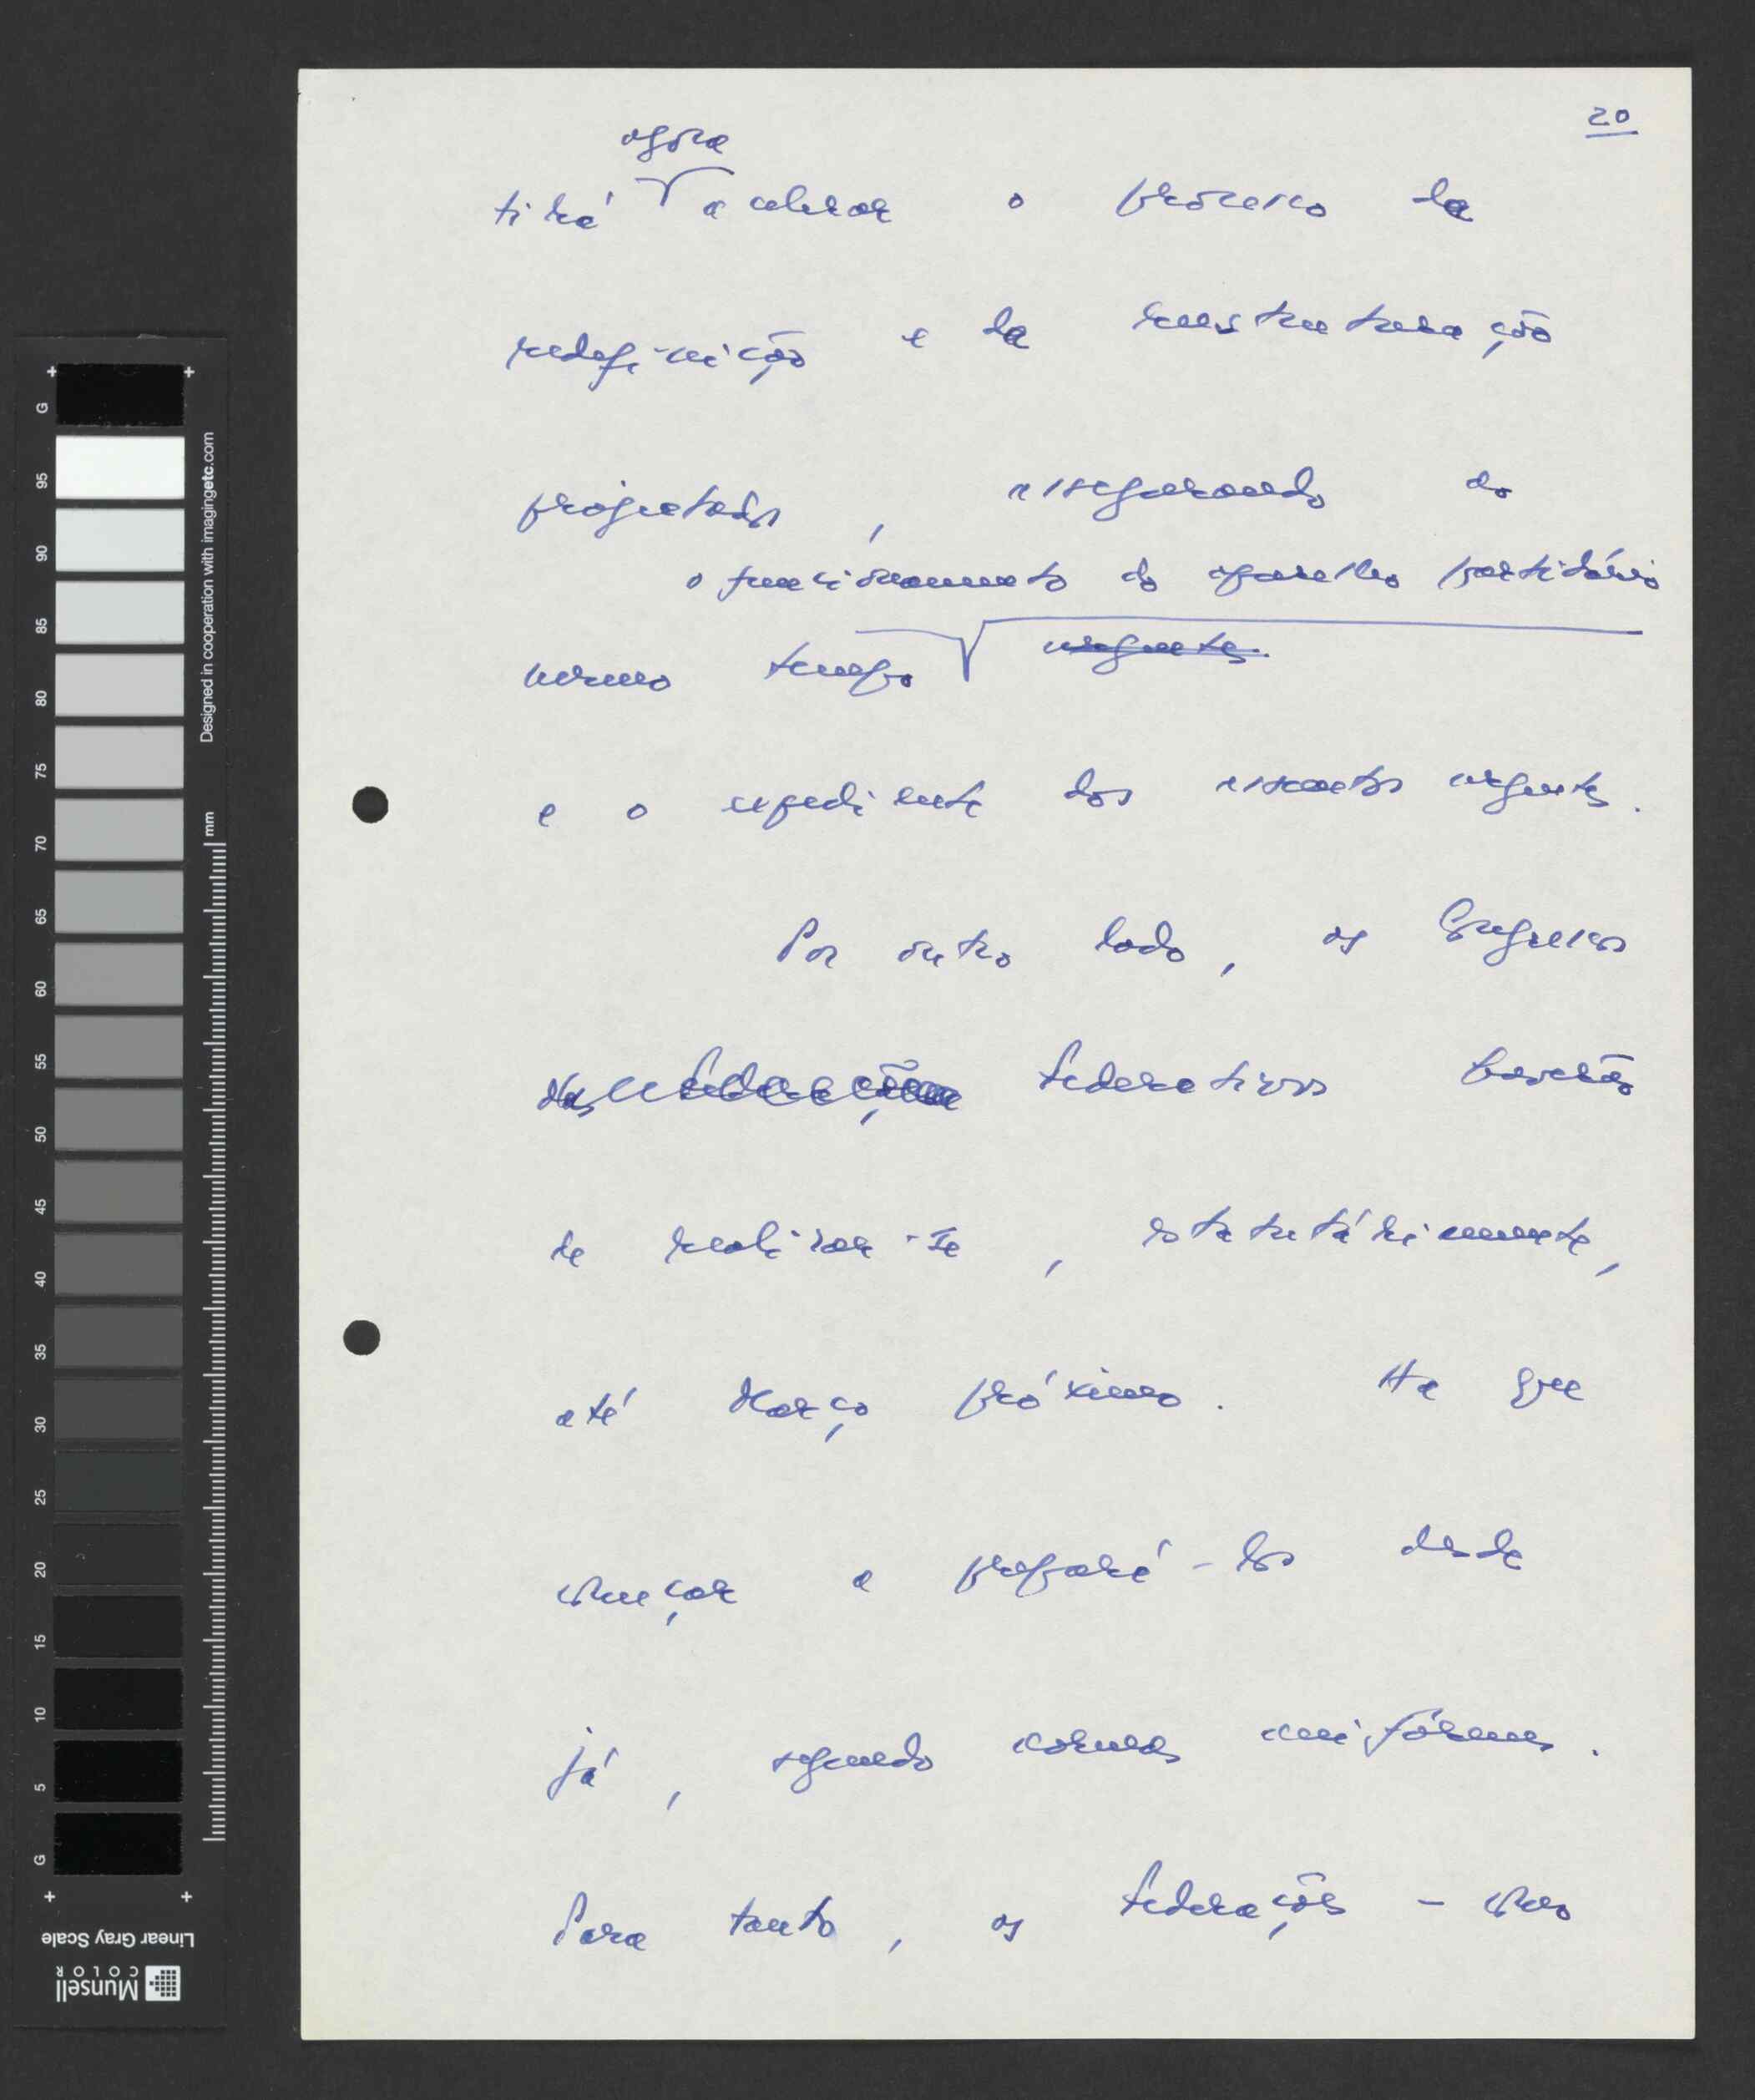 20
agora
tirá acelerar o processo da
redefinição e da reestruturação
projetados, assegurando ao
o funcionamento do aparelho partidário
mesmo tempo urgentes.
e o expediente dos assuntos urgentes.
Por outro lado, os Congressos
das Federações federativos haverão
de realizar-se, estatutáriamente,
até Março próximo. Ha que
começar a prepará-los desde
já, segundo normas uniformes.
Para tanto, as federações - como
G
95
90
85
80
75
70
65
60
55
50
45
40
35
30
25
20
15
10
5
G
mm
Designed in cooperation with imagingetc.com
Linear Gray Scale
Munsell
COLOR